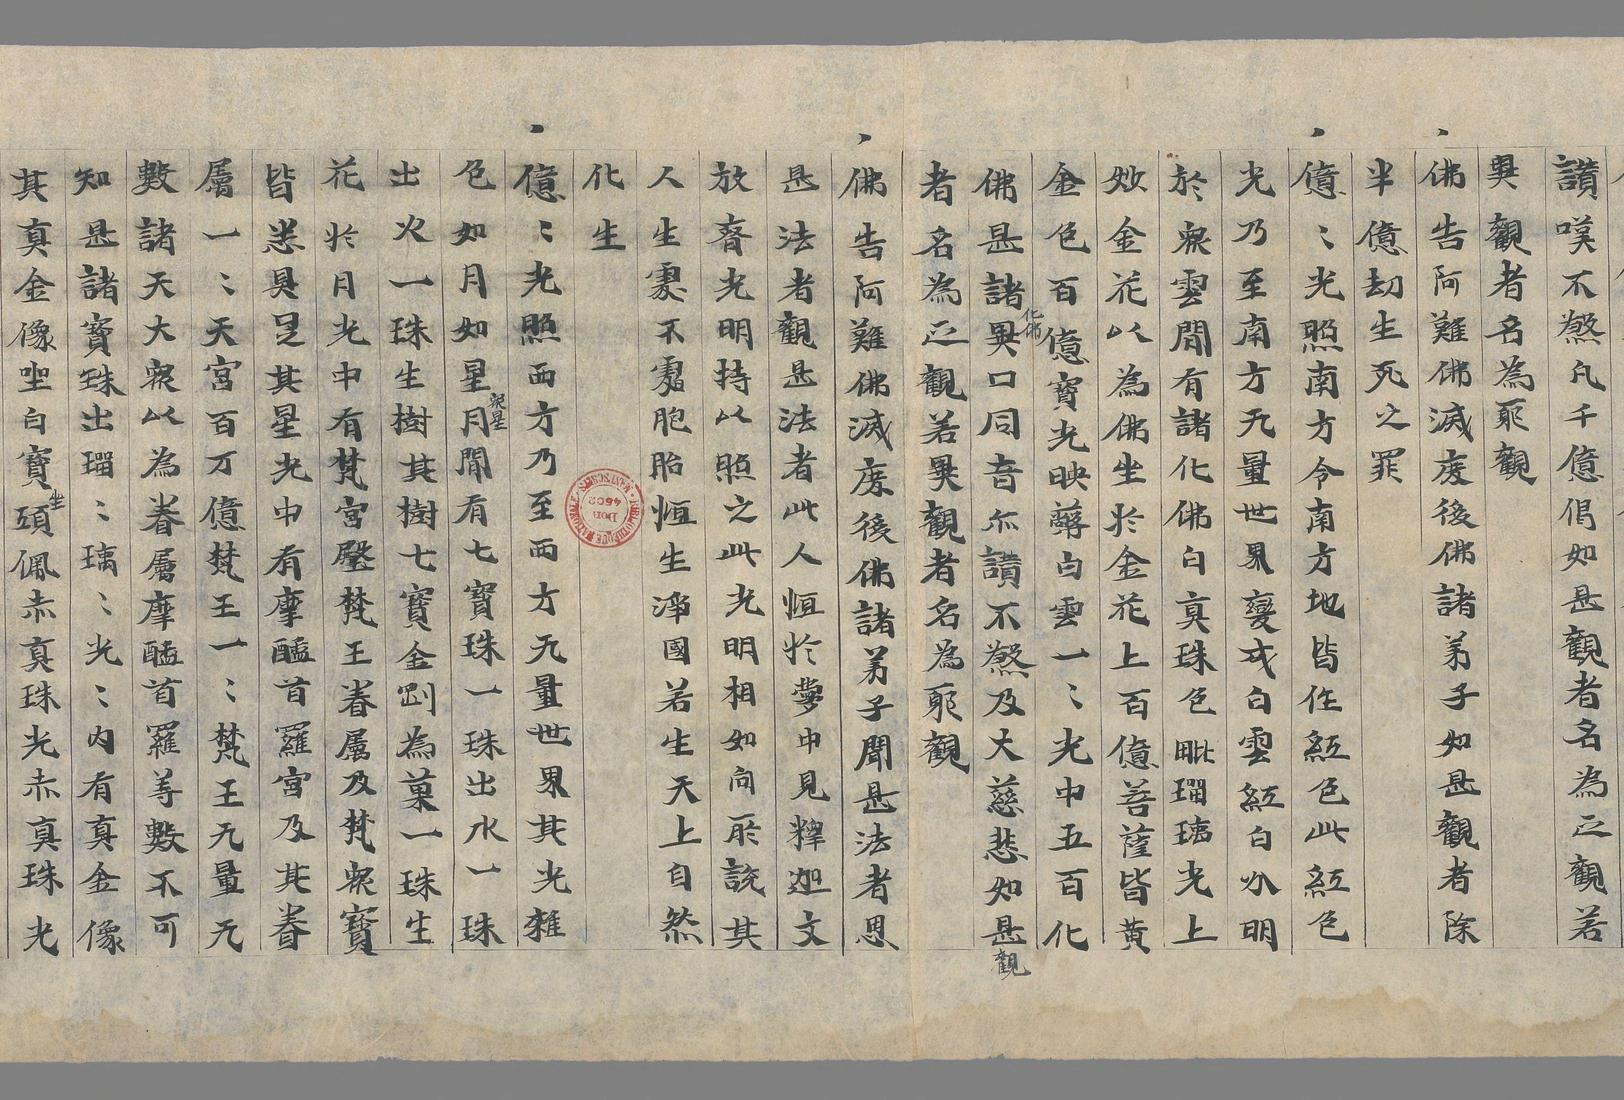 讃嘆不煞凡千億偈如是觀者名為正觀若
異觀者名為耶觀
佛告阿難佛滅度後佛諸弟子如是觀者除
半億劫生死之罪
億〻光照南方令南方地皆作紅色此紅色
光乃至南方无量世界變成白雲紅白分明
於衆雲間有諸化佛白真珠色毗琉璃光上
妙金花以為佛坐於金花上百億菩薩皆黄
金色百億寶光映蔽白雲一〻光中五百化
佛是諸化佛異口同音亦讃不煞及大慈悲如是觀
者名為正觀若異觀者名為耶觀
佛告阿難佛滅度後佛諸弟子聞是法者思
是法者觀是法者此人恒於夢中見釋迦文
放齊光明持以照之此光明相如向所説其
人生處不處胞胎恒生淨國若生天上自然
化生
億〻光照西方乃至西方无量世界其光雜
色如月如星衆星月間有七寶珠一珠出水一珠
出火一珠生樹其樹七寶金剛為菓一珠生
花於月光中有梵宮殿梵王眷屬及梵衆寶
皆悉具足其星光中有摩醯首羅宮及其眷
屬一〻天宮百万億梵王一〻梵王无量无
數諸天大衆以為眷屬摩醯首羅等數不可
知是諸寶珠出琉〻璃〻光〻内有真金像
其真金像坐白寶坐頭佩赤真珠光赤真珠光